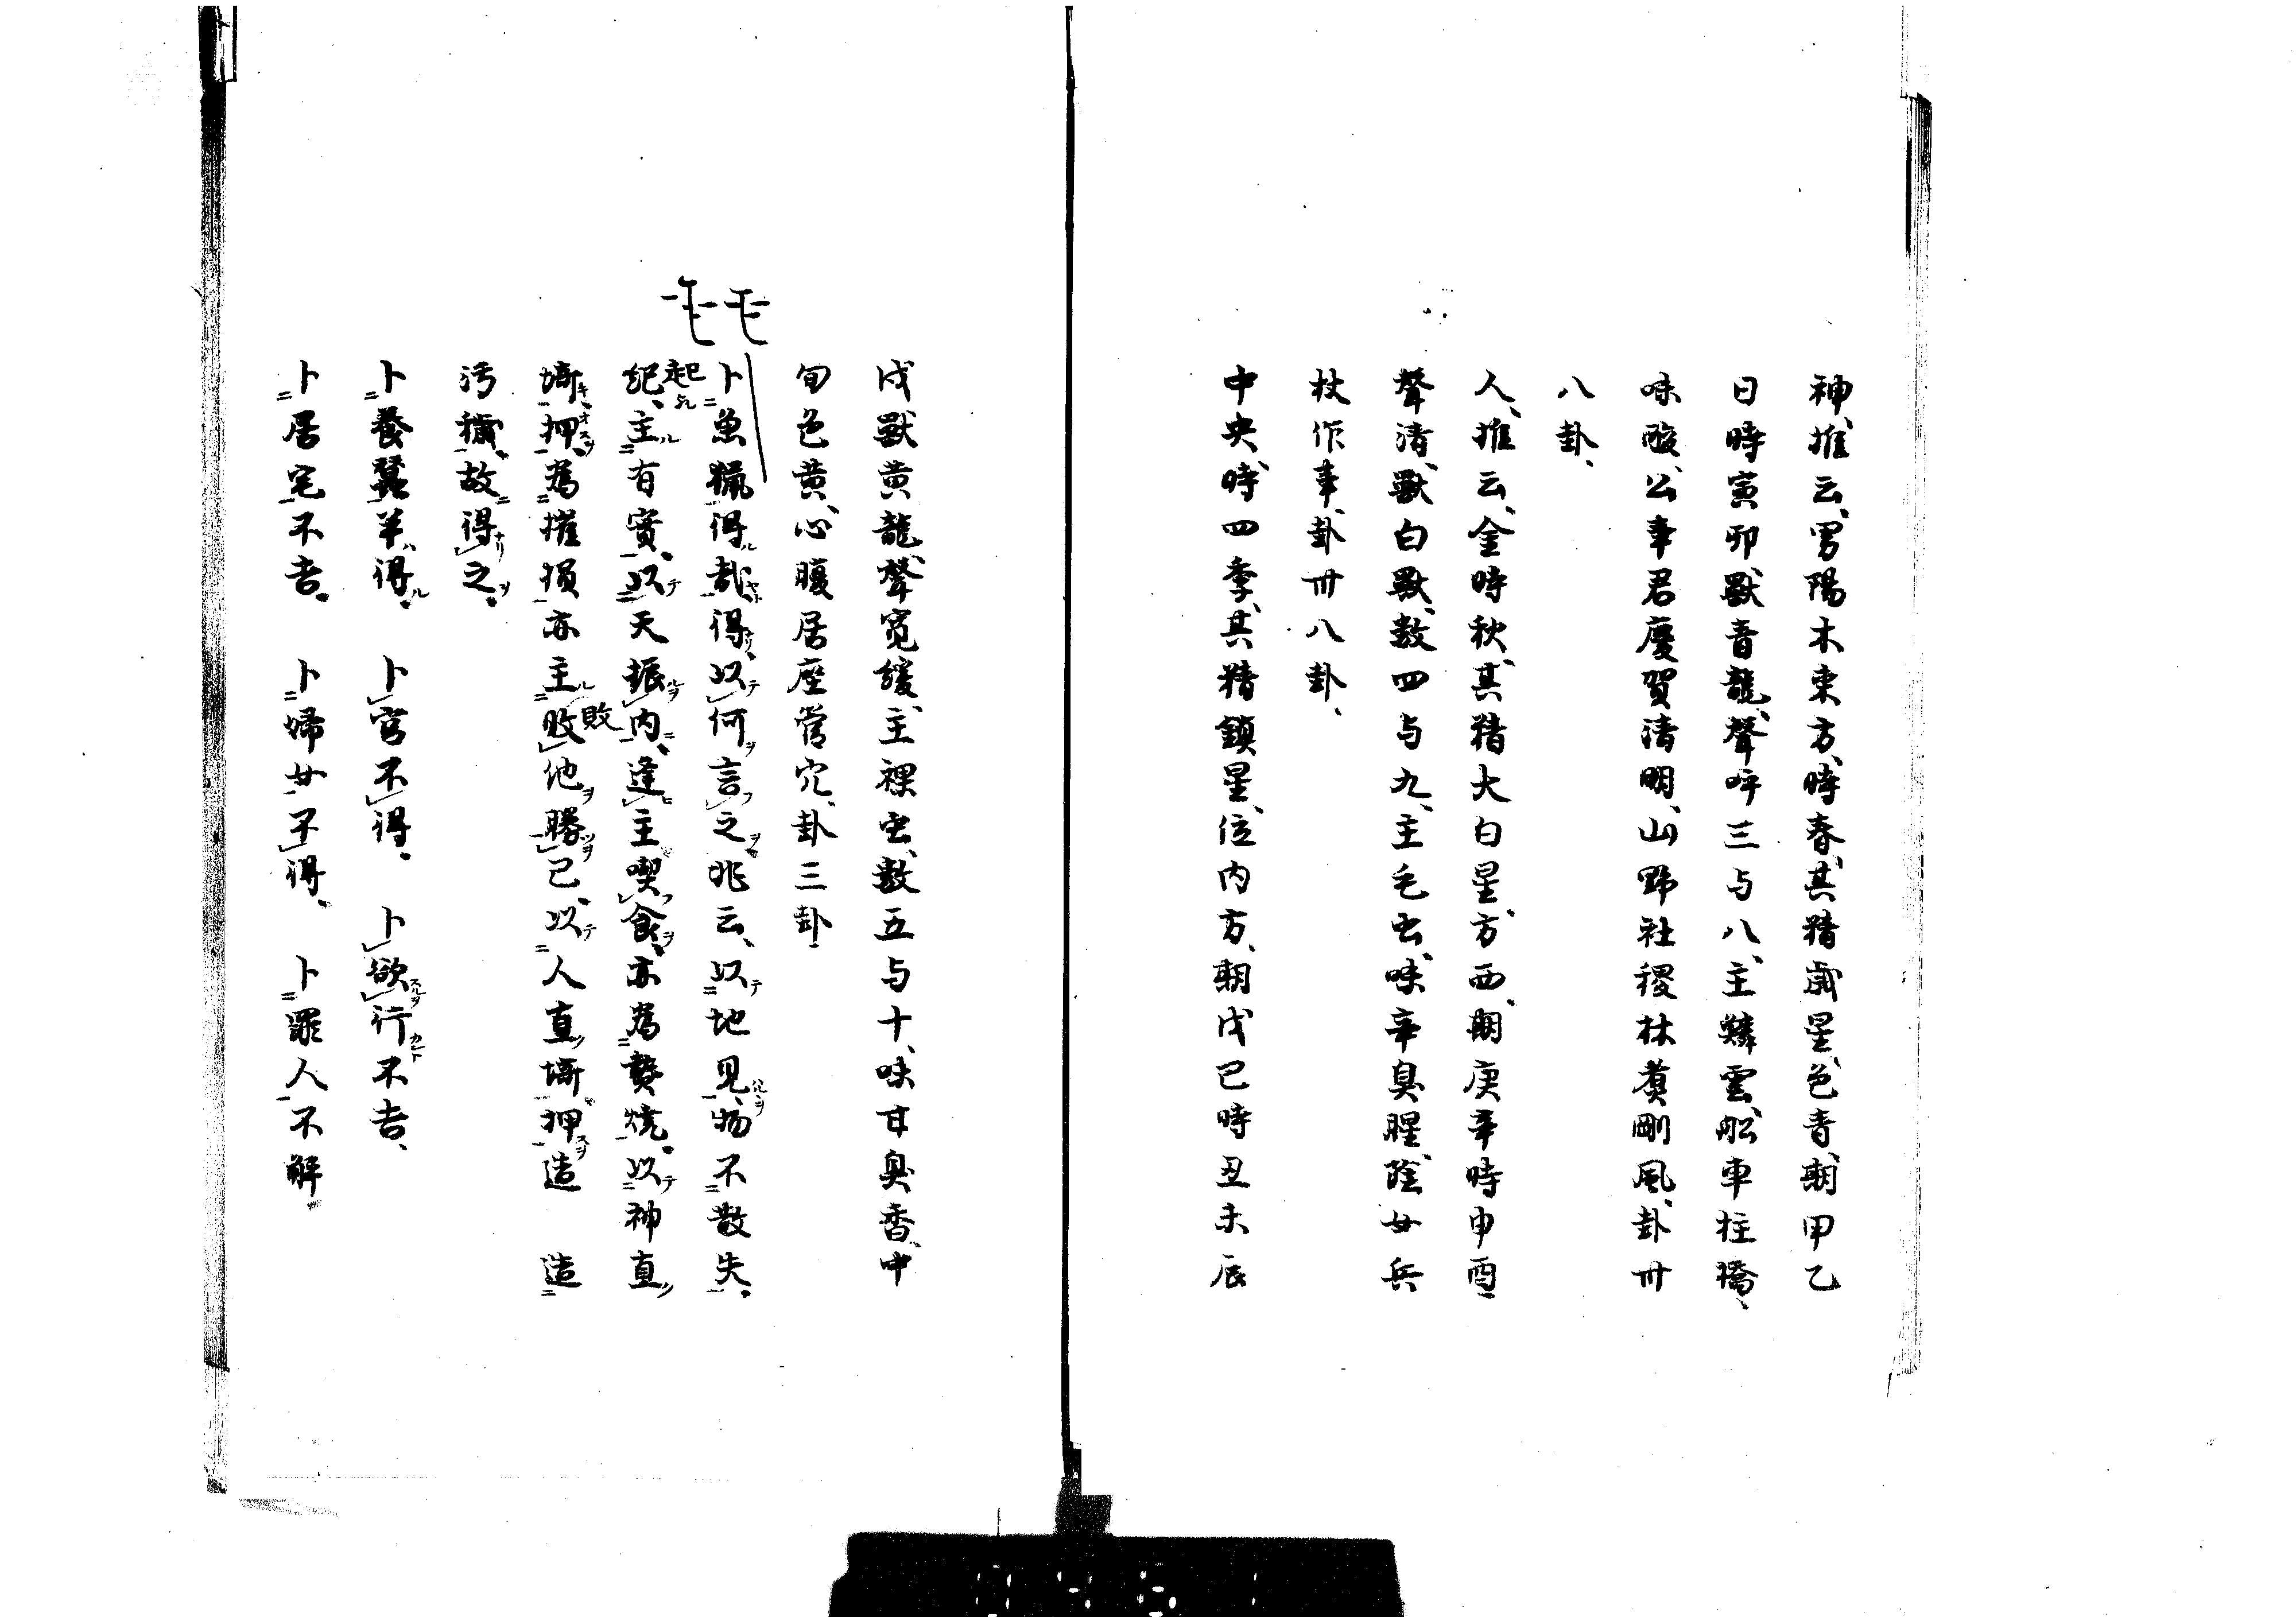 神、推云、男陽木東方、時春、其精歳星、色青、朝甲乙
日時寅卯、獣青龍、聲呼三与八、主鱗雲、舩車柱橋、
味酸、公事君慶賀清明、山野社稷林藂剛風、卦卌
八卦、
人、推云、金時秋、其精大白星、方西、朝庚辛時申酉
聲清、獣白獣、数四与九、主毛虫、味辛臭腥、陰女兵
杖作事、卦卌八卦、
中央、時四季、其精鎮星、位内方、朝戊己時丑未辰
戌獣黄龍、聲寛緩、主裸虫、数五与十、味甘臭香、中
旬色黄、心腹居座営穴、卦三卦
卜魚猟得哉、得、以何言之、兆云、以地見、物不散失、
紀、主有實、以天振内、逢主喫食、亦為費焼、以神直
起
押、為摧損亦主敗他勝己、以人直押造 造
敗
汚穢、故得之、
卜養蠶羊、得、 卜官不得、 卜欲行不吉、
卜居宅不吉、 卜婦女不得、 卜罪人不解、